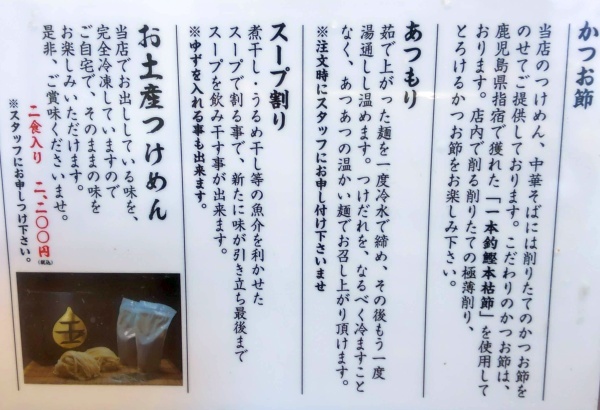 かつお節
当店のつけめん、中華そばには削りたてのかつお節を
のせてご提供しております。こだわりのかつお節は、
鹿児島県指宿で獲れた「一本釣鰹本枯節」を使用して
おります。店内で削る削りたての極薄削り、
とろけるかつお節をお楽しみ下さい。
あつもり
茹で上がった麺を一度冷水で締め、その後もう一度
湯通しし温めます。つけだれを、なるべく冷ますこと
なく、あつあつの温かい麺でお召し上がり頂けます。
※注文時にスタッフにお申し付け下さいませ
スープ割り
煮干し・うるめ干し等の魚介を利かせた
スープで割る事で、新たに味が引き立ち最後まで
スープを飲み干す事が出来ます。
※ゆずを入れる事も出来ます。
お土産つけめん
当店でお出ししている味を、
完全冷凍していますので
ご自宅で、そのままの味を
お楽しみいただけます。
是非、ご賞味くださいませ。
二食入り 二、二〇〇円(税込)
※スタッフにお申しつけ下さい。